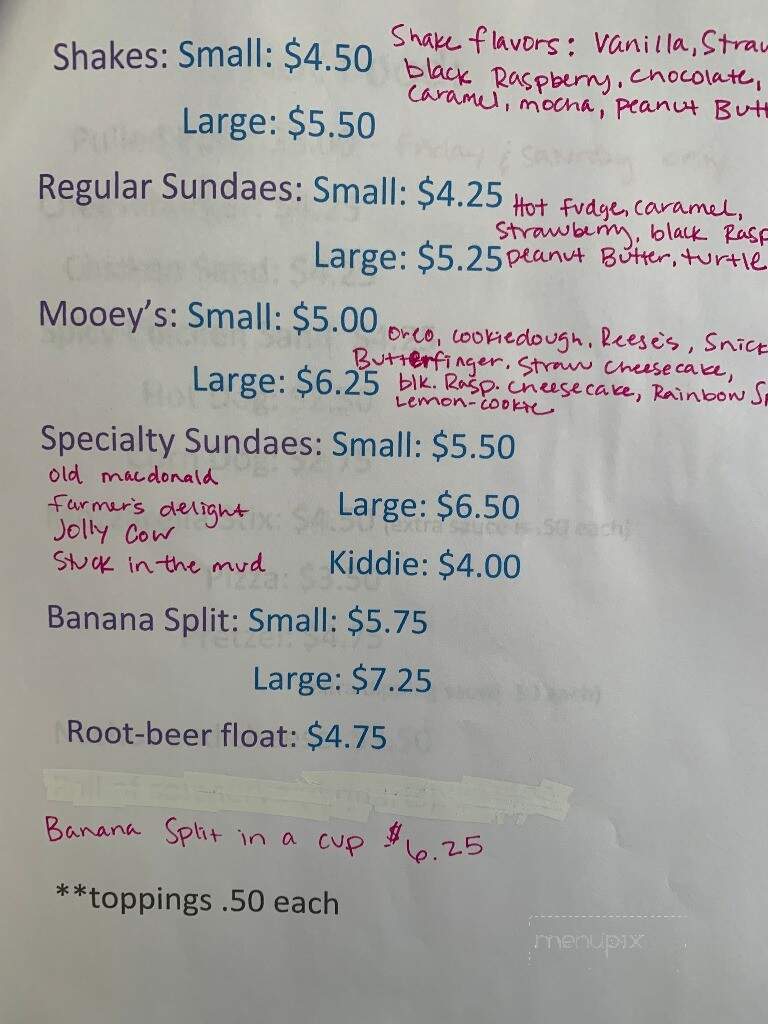 Shakes: Small: $4.50
Shake flavors: Vanilla, Straw
black Raspberry, chocolate,
caramel, mocha, peanut Butt
Large: $5.50
Regular Sundaes: Small: $4.25
Hot fudge, caramel,
Strawberry, black Rasp
Large: $5.25
peanut Butter, turtle
Mooey's: Small: $5.00
Oreo, cookiedough, Reese's, Snick
Butterfinger, Straw cheesecake,
Large: $6.25
blk. Rasp. cheesecake, Rainbow Sp
Lemon-cookie
Specialty Sundaes: Small: $5.50
old macdonald
farmer's delight
Large: $6.50
Jolly Cow
Stuck in the mud
Kiddie: $4.00
Banana Split: Small: $5.75
Large: $7.25
Root-beer float: $4.75
Banana Split in a cup $6.25
**toppings .50 each
menupix